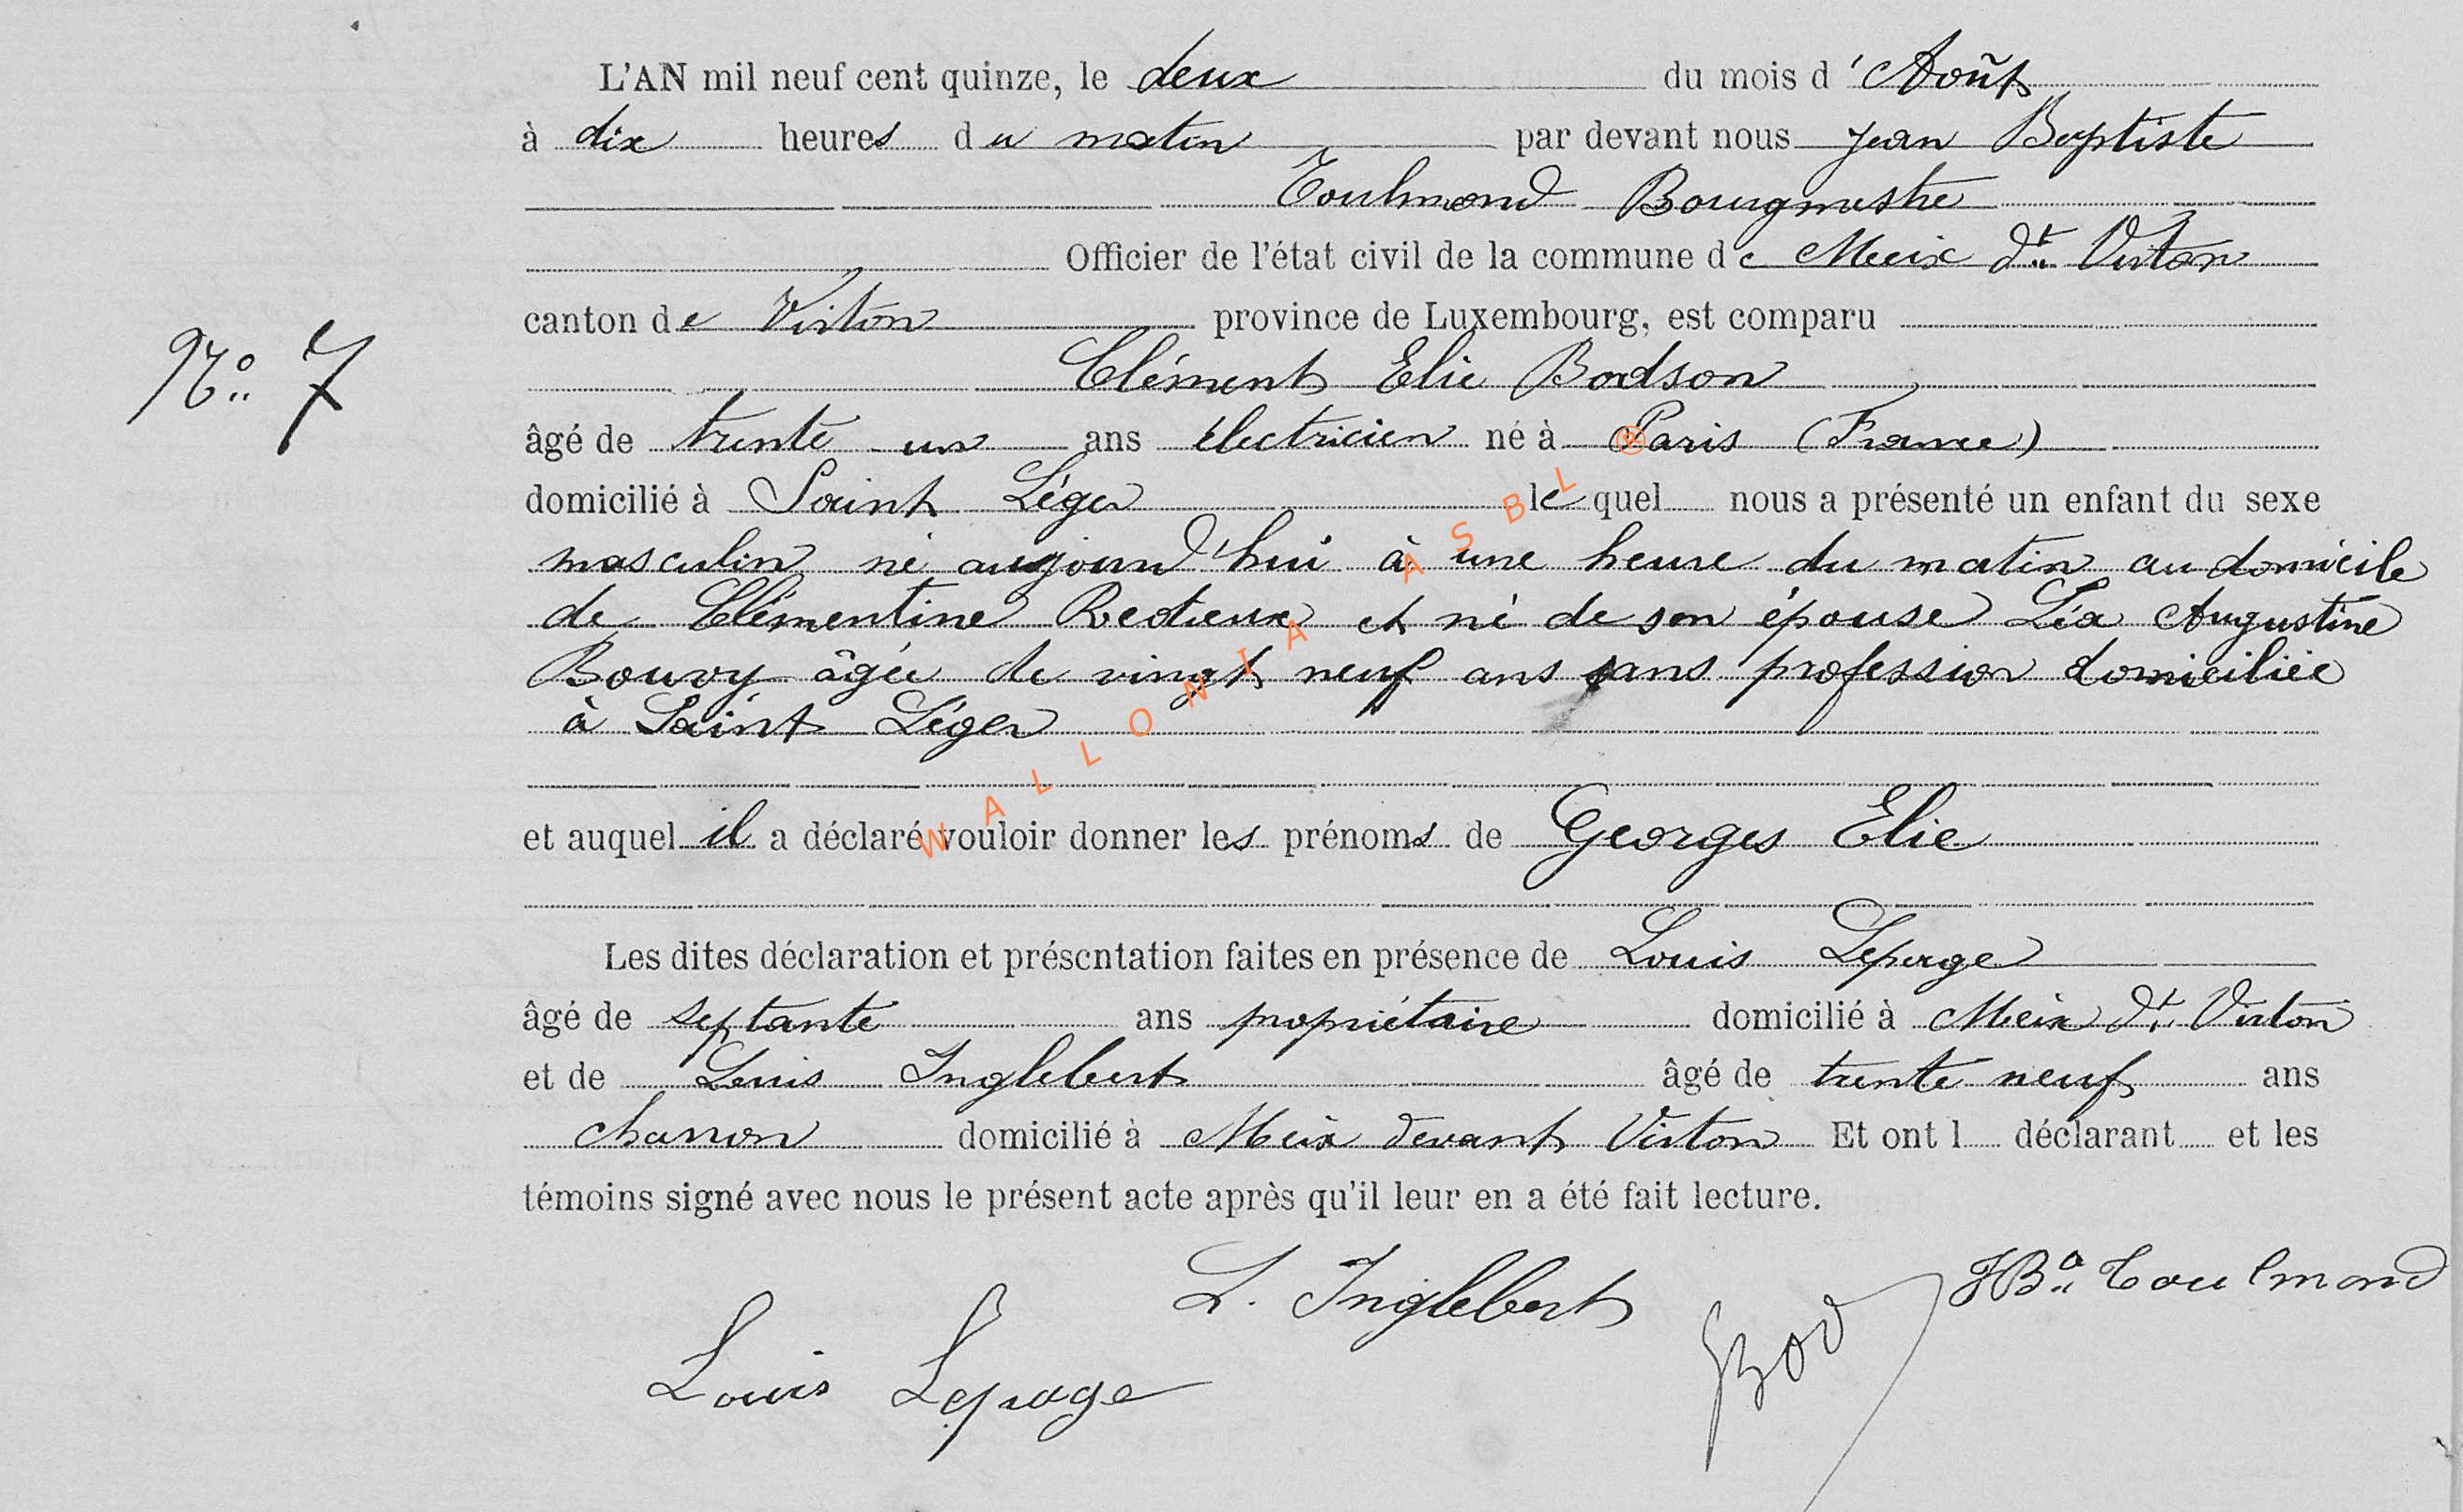 L'AN mil neuf cent quinze, le deux du mois d'Août
à dix heures du matin par devant nous Jean Baptiste
Toulmond Bourgmestre
Officier de l'état civil de la commune de Meix dt Virton
canton de Virton province de Luxembourg, est comparu
Clément Elie Bodson
N° 7
âgé de trente un ans électricien né à Paris (France)
domicilié à Saint Léger lequel nous a présenté un enfant du sexe
masculin né aujourd'hui à une heure du matin au domicile
de Clémentine et né de son épouse Léa Augustine
Bouvy âgée de vingt neuf ans sans profession domiciliée
à Saint Léger
et auquel il a déclaré vouloir donner les prénoms de Georges Elie
Les dites déclaration et présentation faites en présence de Louis Lepage
âgé de septante ans propriétaire domicilié à Meix dt Virton
et de Louis Inglebert âgé de trente neuf ans
charron domicilié à Meix devant Virton Et ont l déclarant et les
témoins signé avec nous le présent acte après qu'il leur en a été fait lecture.
L. Inglebert JBte Toulmond
Louis Lepage Bod
WALLONIA ASBL ®